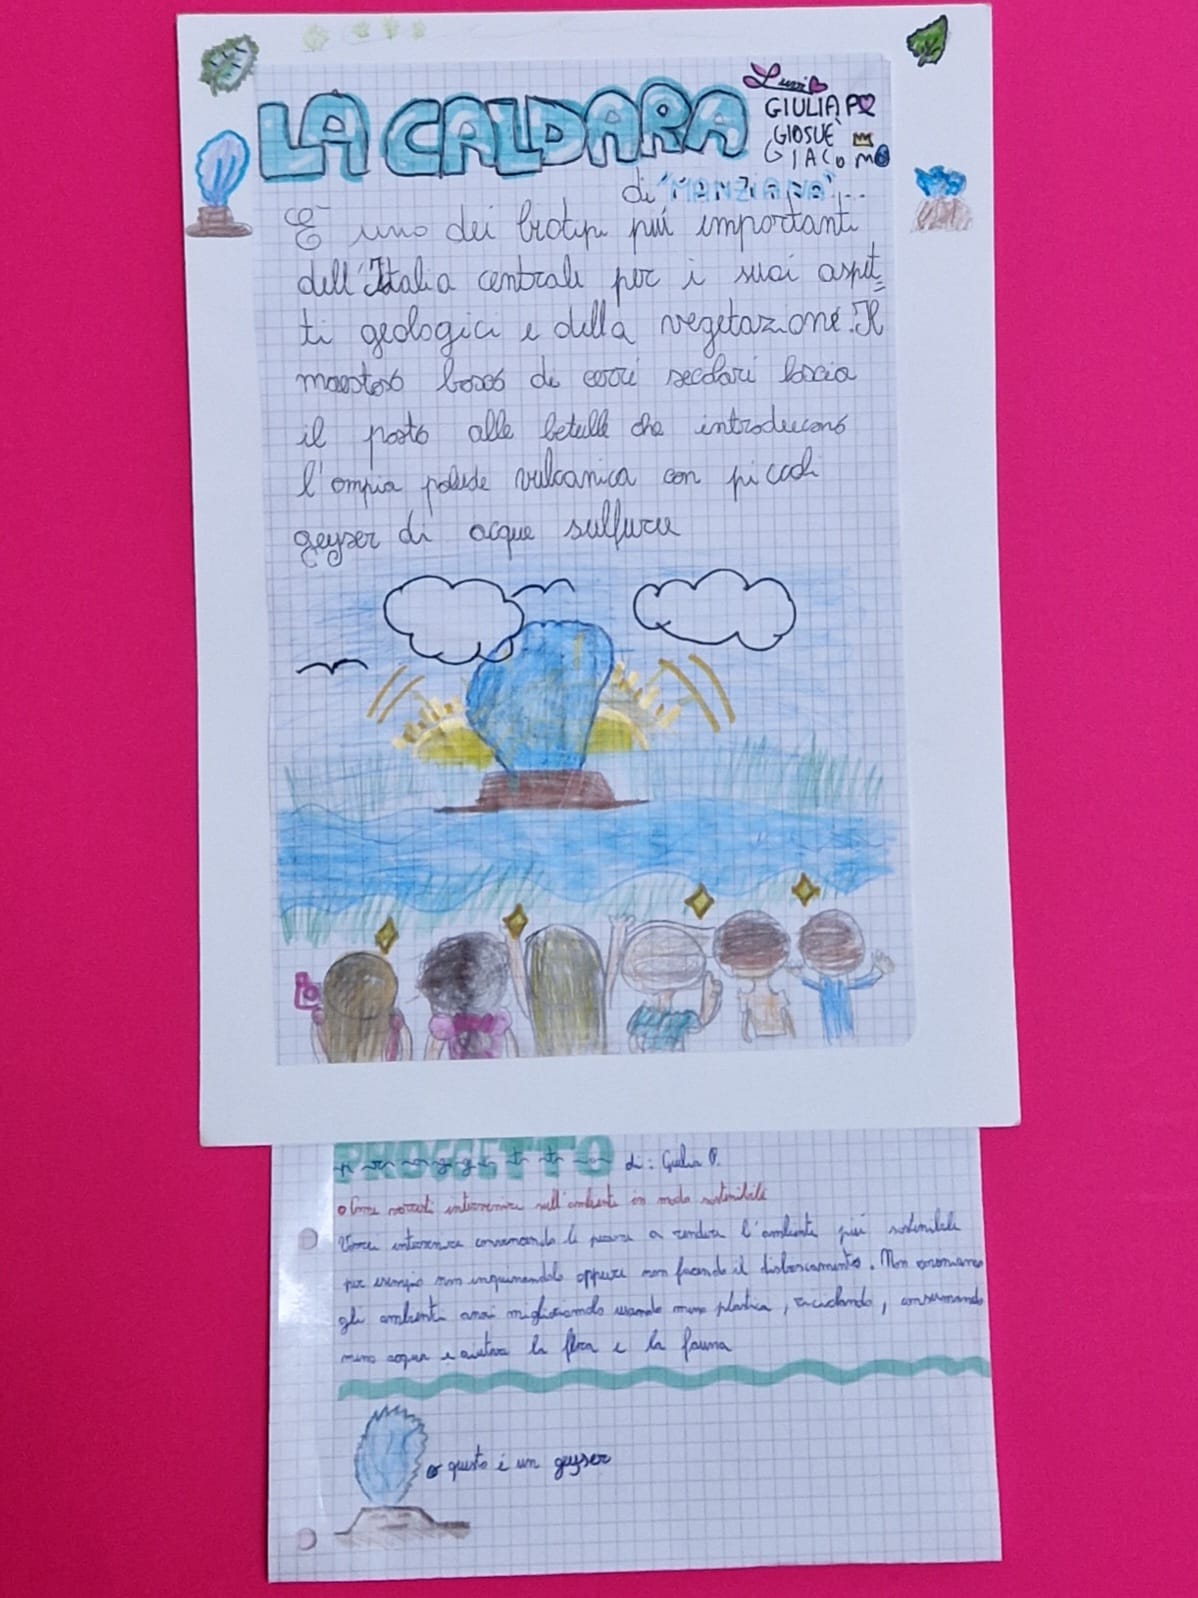 LA CALDARA
GIULIA P
GIOSUÈ
GIACOMO
di "MANZIANA"...
È uno dei biotipi piú importanti
dell'Italia centrale per i suoi aspet=
ti geologici e della vegetazione. Il
maestoso bosco di cerri secolari lascia
il posto alle betulle che introducono
l'ampia palude vulcanica con piccoli
geyser di acque sulfuree
PROGETTO
progetto di: Giulia P.
Come vorresti intervenire sull'ambiente in modo sostenibile
Vorrei intervenire convincendo le persone a rendere l'ambiente piú sostenibile
per esempio non inquinandolo oppure non facendo il disboscamento. Non
gli ambienti anzi migliorando usando meno plastica, riciclando, consumando
meno acqua e aiutare la flora e la fauna
questo è un geyser